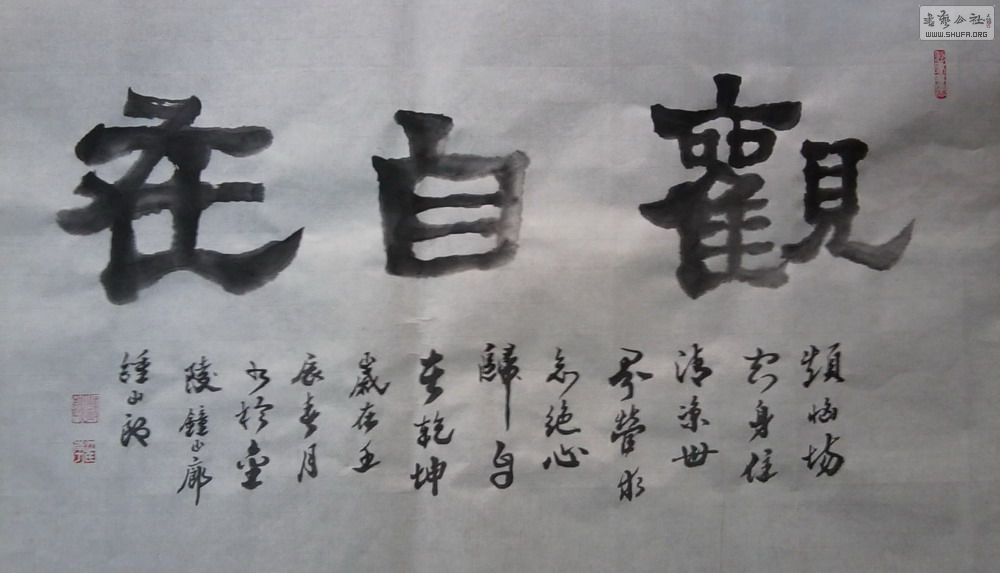 觀自在
煩惱場
空身住
清凉世
界營求
念絕心
歸自
在乾坤
歲在壬
辰春月
書於金
陵鐘山廊
鍾山
書藝公社
WWW.SHUFA.ORG